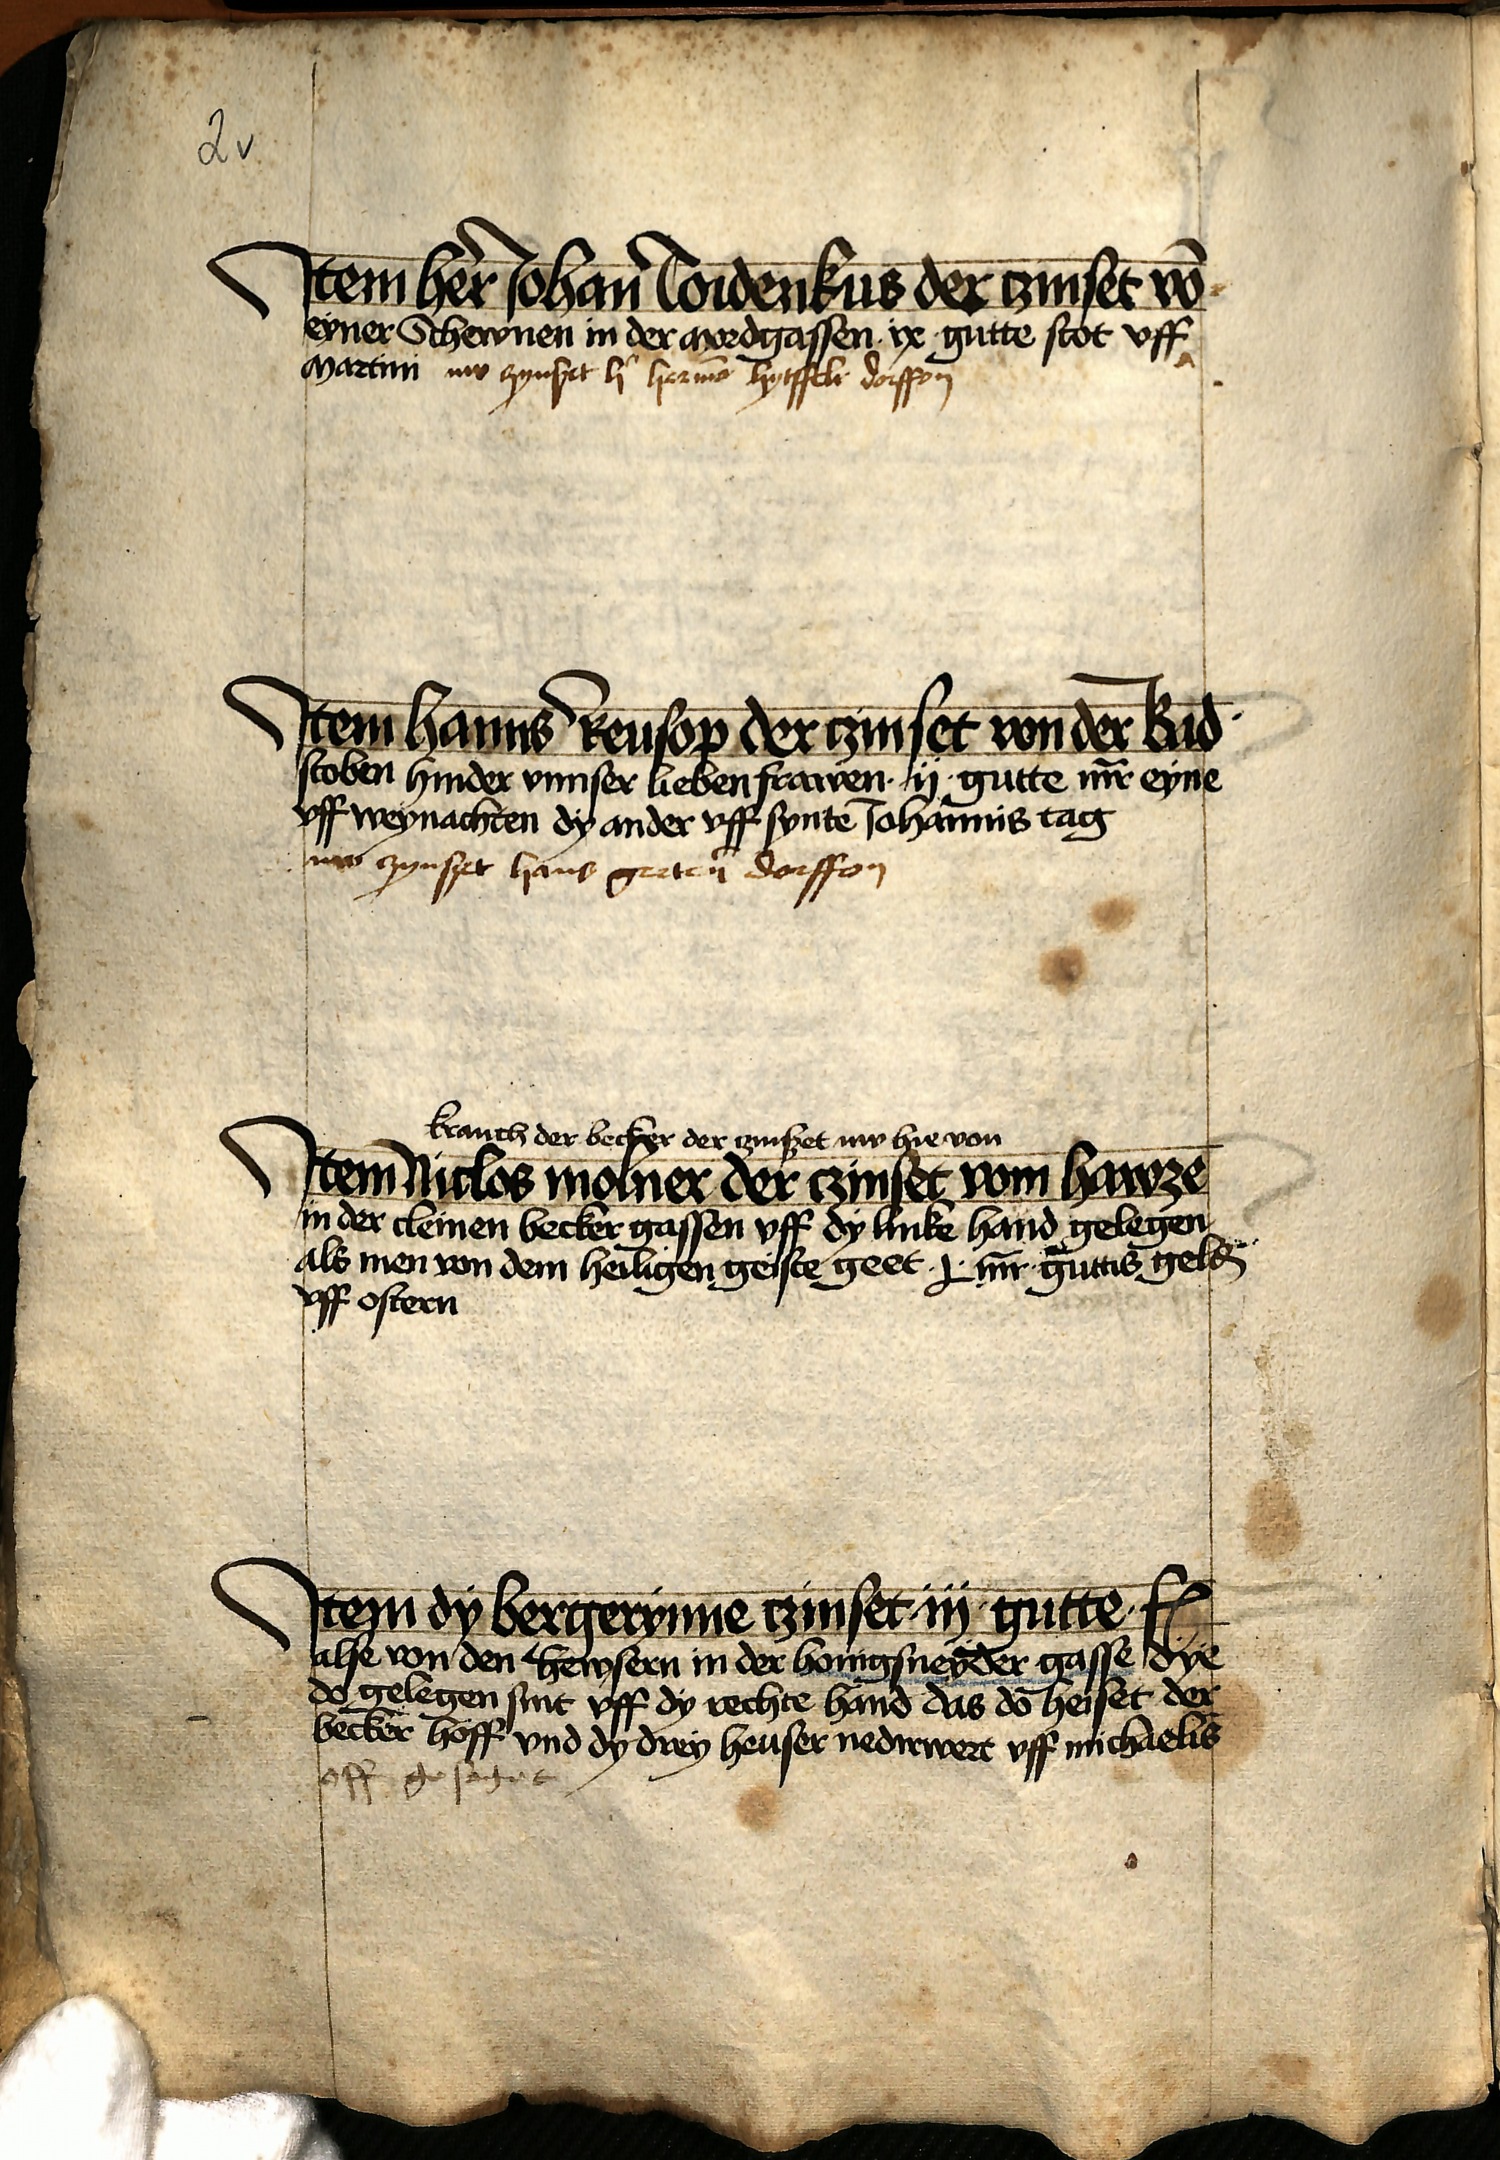 2v
Item her̄ Johan̄ Coidenkus der czinset vō
eyner Schewnen in der mordgassen · ix · gutte scot vff
Martini nw zynset h̓ hermā dorffon
Item hanns Reusop der czinset von der Bad
stoben hinder vnnser lieben frawen · ij · gutte mr̄ eyne
vff weynachten dy ander vff synte Johannis tag
nw zynset hans dorffon
kranch der becker der czinset nw hie von
Item Niclos molner der czinset vom hawze
in der cleinen becker gassen vff dy linke hand gelegen
als men von dem heiligen geiste geet · mr̄ · guttis geldes
vff ostern
Item dy bergerynne czinset · iij · gutte ·
alse von den hewsern in der honigsneyder gasse dye
do gelegen sint vff dy rechte hand das do heiset der
becker hoff vnd dy drey heuser nedirwert vff michaelis
off gesaget